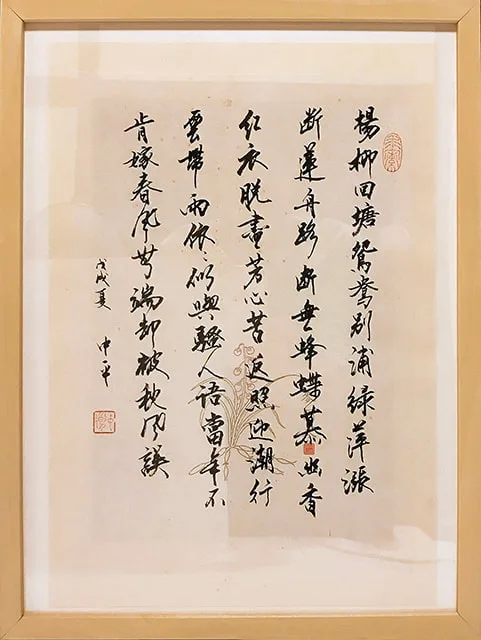 楊柳回塘鴛鴦别浦绿萍漲
断蓮舟路断無蜂蝶慕幽香
红衣脱盡芳心苦返照迎潮行
雲帶雨依々似與騷人语當年不
肯嫁春风無端却被秋风誤
戊戌夏 中平